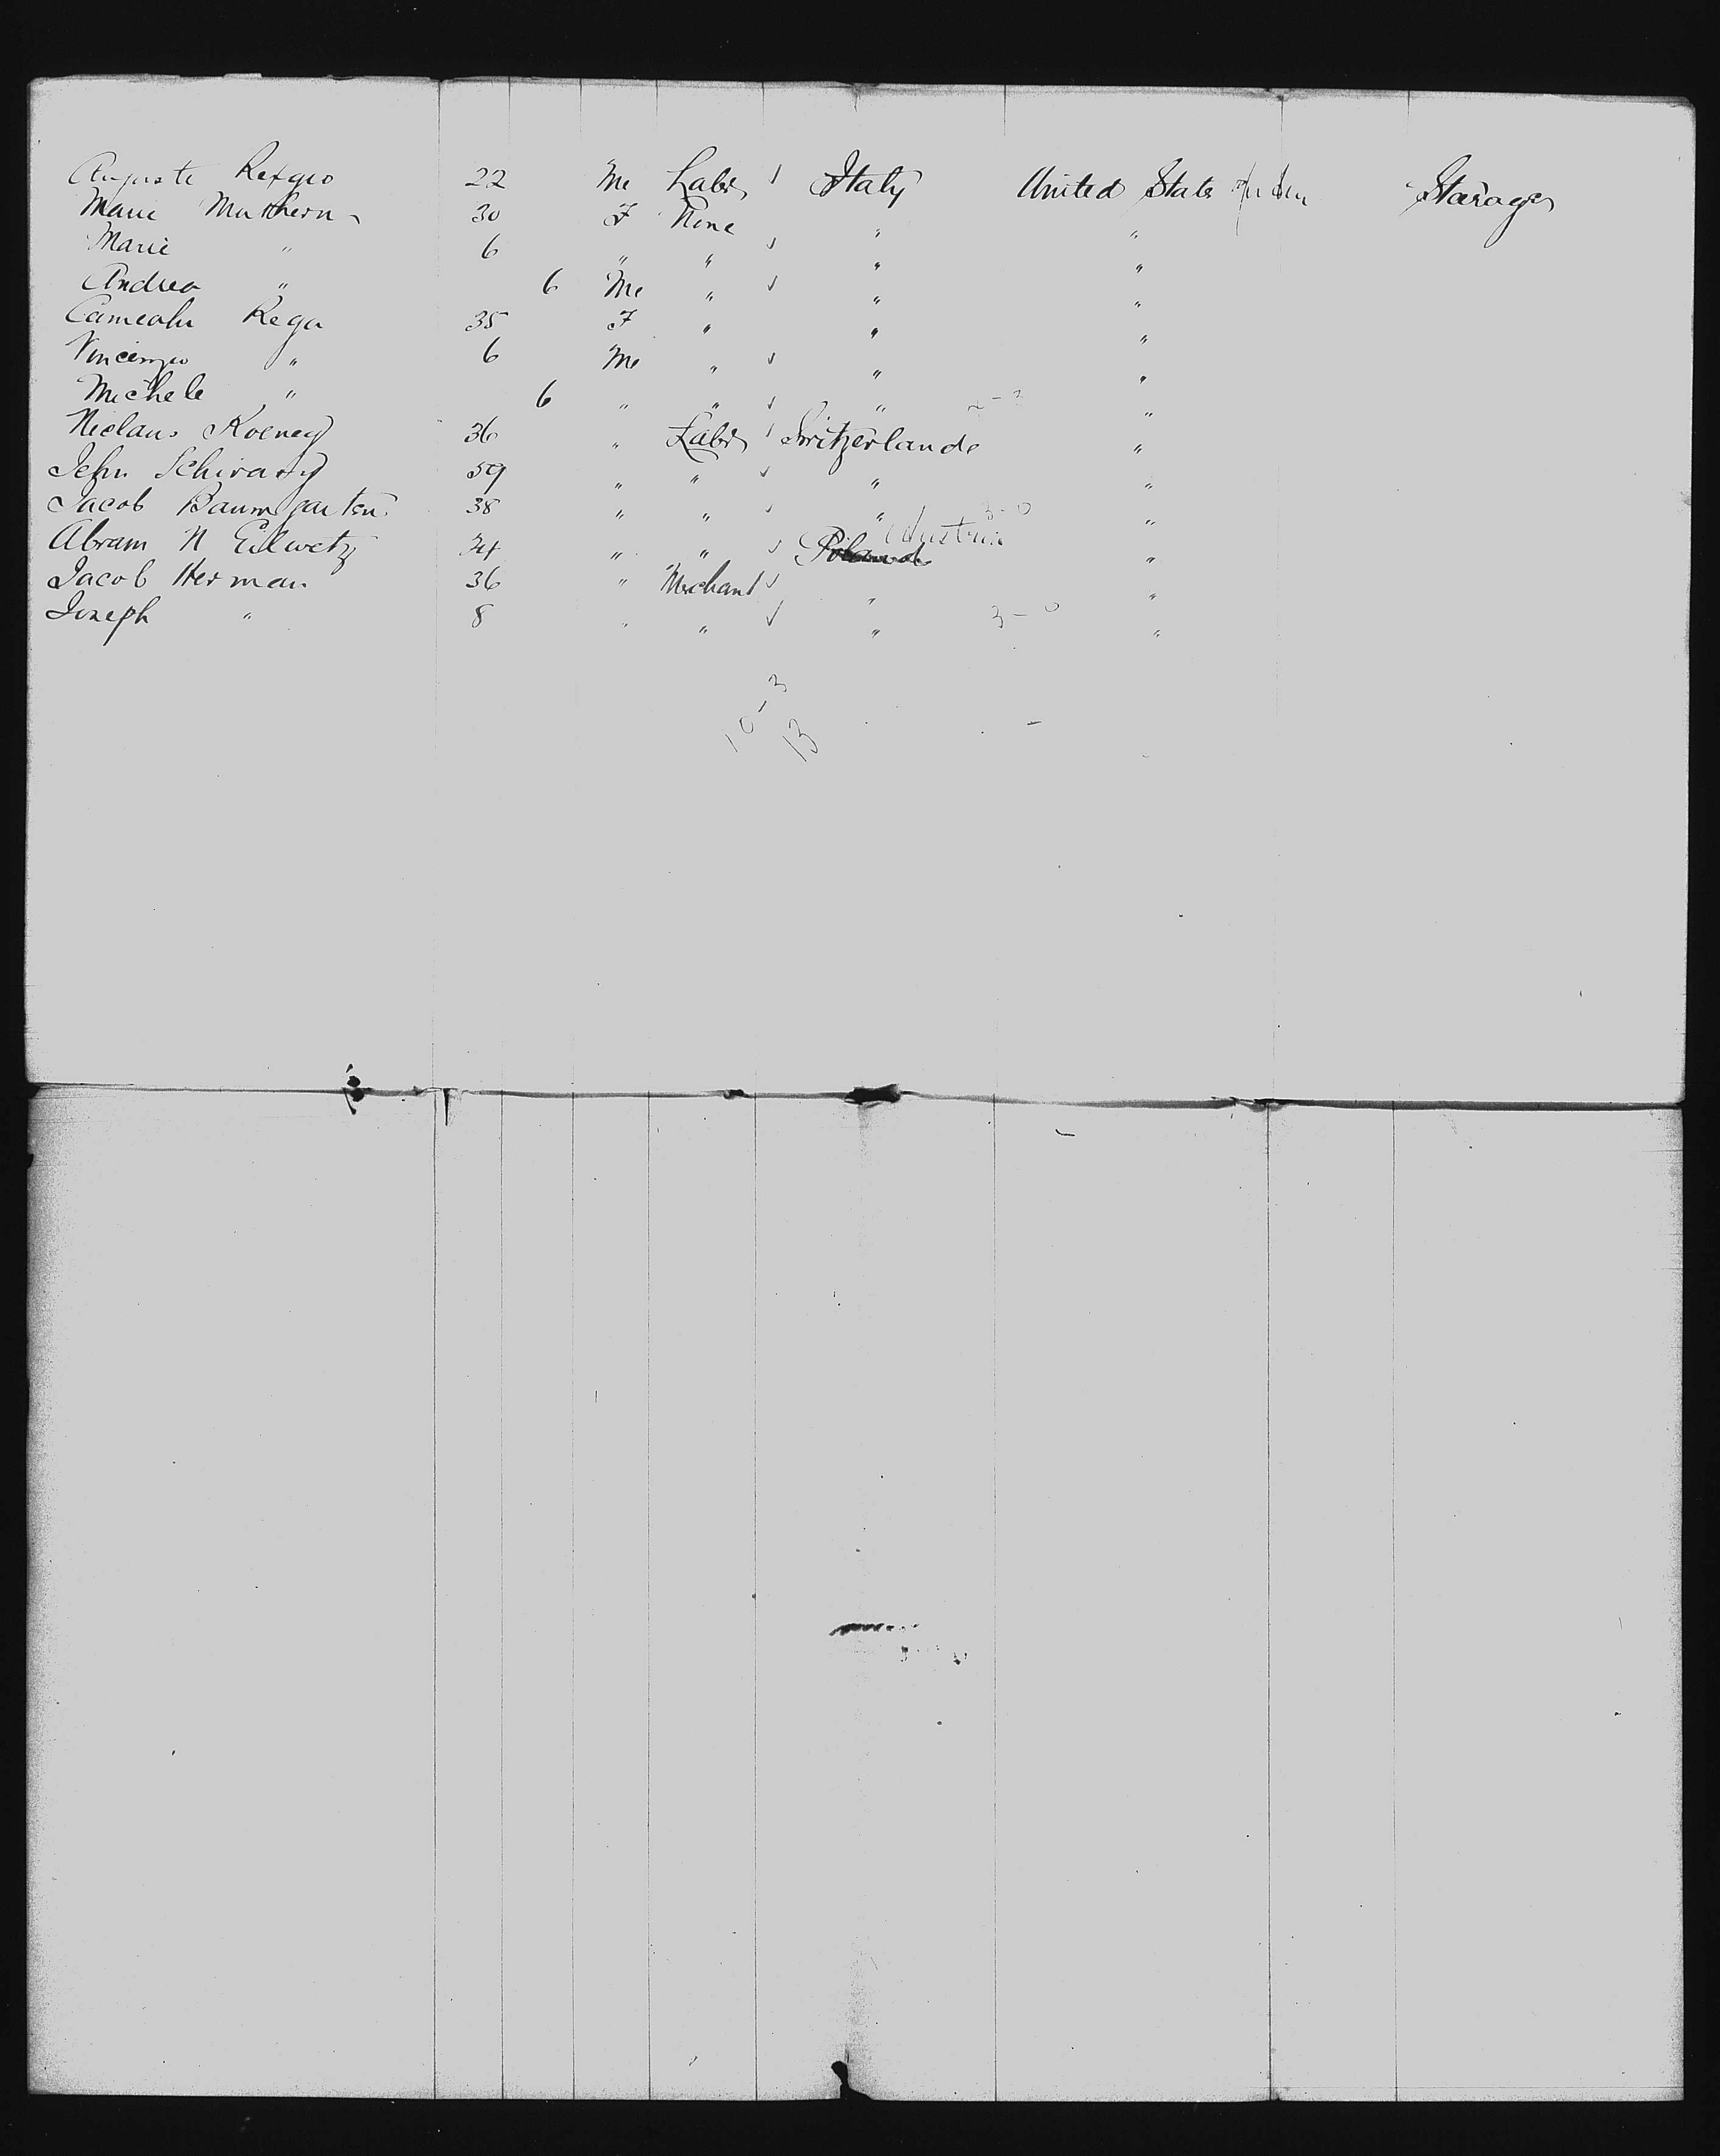 Auguste Refgio 22 Me Labr Italy United States Stearage
Marie Muthern 30 F None " "
Marie " 6 " " " "
Andrea " 6 Me " " "
Rega 35 F " " "
Vincenzo " 6 Me " " "
Michele " 6 " " " "
Niclaus Koeneg 36 " Labr Switzerlande "
John 59 " " " "
3-0
Jacob Baumgarten 38 " " " "
Austria
Abram N Eilwetz 34 " " Polande "
Jacob Herman 36 " Merchant " "
Joseph " 8 " " " 3-0 "
10-3
13